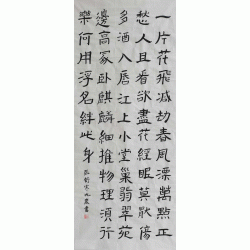 一片花飛减却春風漂萬點正
愁人且看欲盡花經眼莫厭傷
多酒入唇江上小堂巢翡翠苑
邊高冢卧麒麟細推物理須行
樂何用浮名絆此身